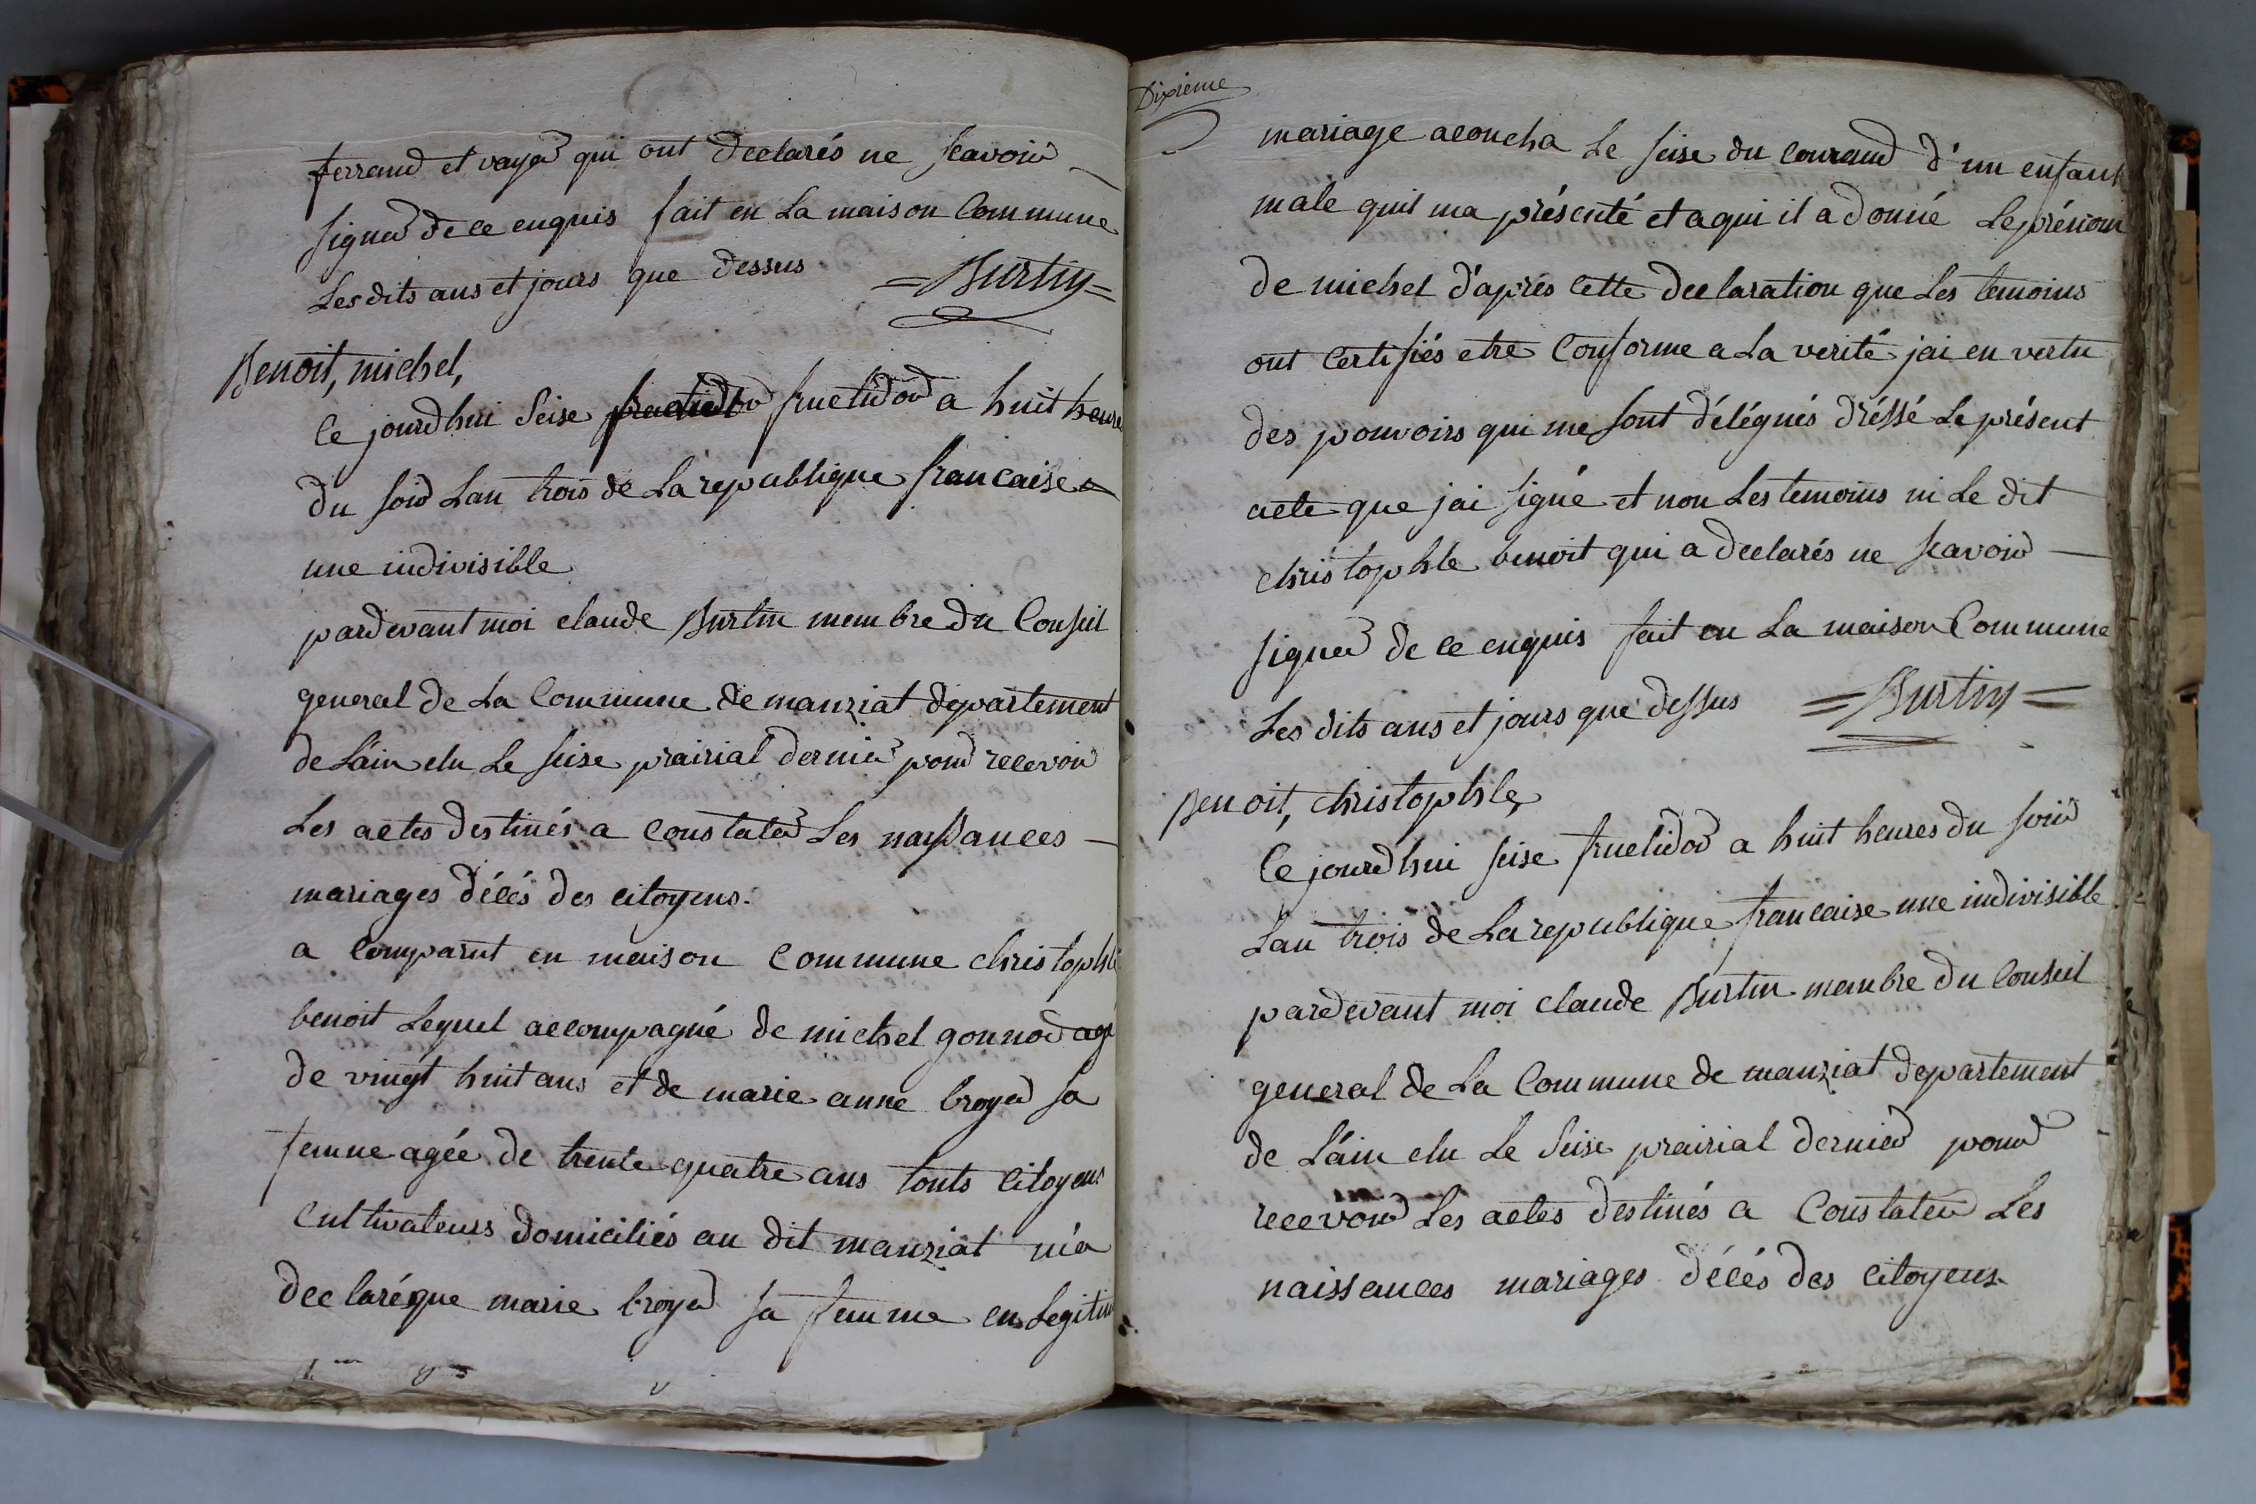 ferrand et vayer qui ont declarés ne scavoir
signer de ce enquis fait en la maison Commune
Les dits ans et jours que dessus =Burtin=
Benoit, michel,
Ce jourdhui seise fructidor a huit heure
du soir Lan trois de La republique francaise
une indivisible
pardevant moi claude Burtin membre du Conseil
general de La Commune de manziat departement
de L'ain elu Le seise prairial dernier pour recevoir
Les actes destinés a Constater Les naissances
mariages décés des citoyens.
a comparut en maison Commune christophle
benoit Lequel accompagné de michel gonnod agé
de vingt huit ans et de marie anne broyer sa
femme agée de trente quatre ans touts Citoyens
Cultivateurs domiciliés au dit manziat m'a
declaré que marie broyer sa femme en Legitime
Dixieme
mariage acoucha Le seise du courand d'un enfant
male quil ma présenté et a qui il a donné Le prénom
de michel d'aprés Cette declaration que Les temoins
ont Certifiés etre Conforme a La verité jai en vertu
des pouvoirs qui me sont délégués dréssé Le présent
acte que jai signé et non Les temoins ni Le dit
christophle benoit qui a declarés ne scavoir
signer de ce enquis fait en La maison Commune
Les dits ans et jours que dessus =Burtin=
Benoit, christophle,
Ce jourdhui seise fructidor a huit heures du soir
Lan trois de La republique francaise une indivisible
pardevant moi claude Burtin membre du Conseil
general de La Commune de manziat departement
de L'ain elu Le seise prairial dernier pour
recevoir Les actes destinés a Constater Les
naissances mariages décés des Citoyens